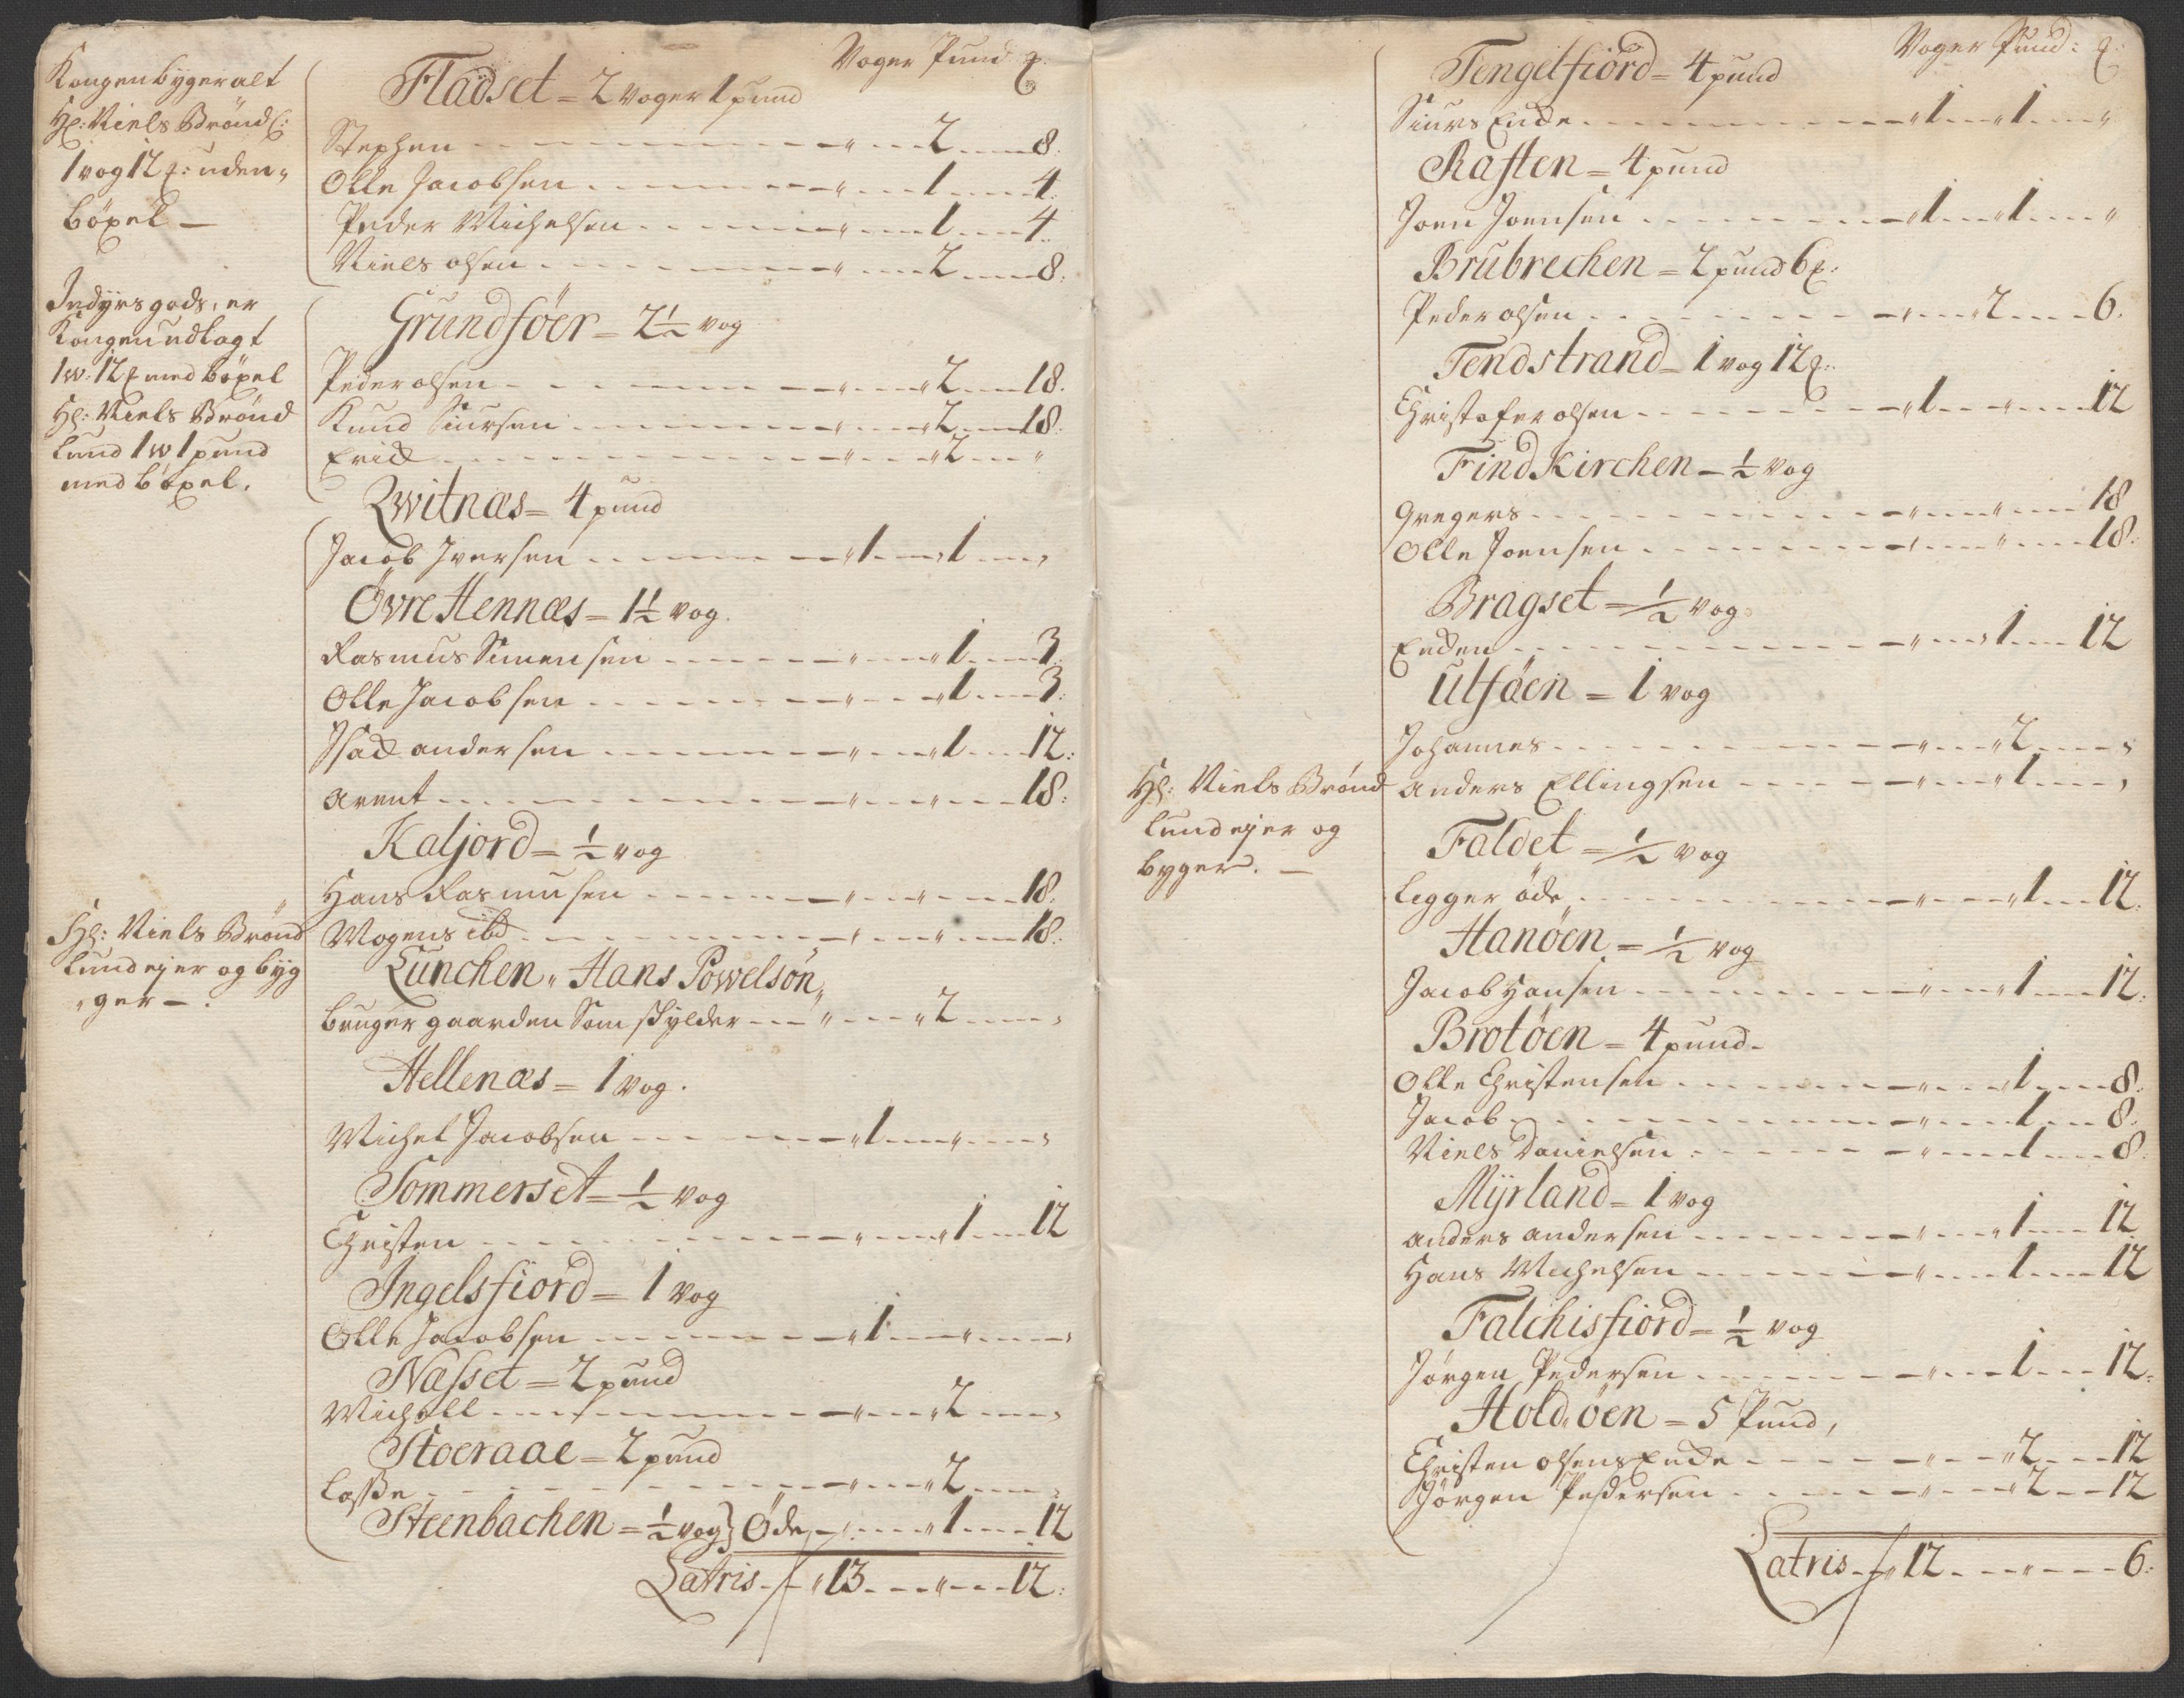 Kongen bygger alt
Hr: Niels Brönd l:
1 vog 12 ℔: uden„
böxel —
Indyrs gods, er
Kongen udlagt
1 w: 12 ℔ med böxel
Hr: Niels Brönd
lund 1 w 1 pund
med böxel.
Hr: Niels Brönd
lund ejer og byg
„ger —.
Voger Pund ℔:
Fladset = 2 Voger 1 pund
Stephen - - - „ - - 2 - - 8.
Olle Jacobsen - - - „ - - 1 - - 4.
Peder Michelsen - - - „ - - 1 - - 4.
Niels olsen - - - „ - - 2 - - 8.
Grundföer = 2½ vog
Peder olsen - - - „ - - 2 - - 18.
Knud Siursen - - - „ - - 2 - - 18.
Erick - - - „ - - 2 - - „
Qwitnæs = 4 pund
Jacob Iversen - - - 1 - - 1 - - „
Övre Hennæs = 1½ vog.
Rasmus Simensen - - - „ - - 1 - - 3.
Olle Jacobsen - - - „ - - 1 - - 3.
Isack andersen - - - „ - - 1 - - 12:
Arent - - - „ - - „ - - 18:
Kaljord = ½ vog
Hans Rasmusen - - - „ - - „ - - 18.
Mogens ibd - - - „ - - „ - - 18.
Lunchen „ Hans Powelsön „
bruger gaarden Som skylder - - „ - - 2 - - „
Hellenæs = 1 vog.
Michel Jacobsen - - - 1 - - „ - - „
Sommerset = ½ vog
Christen - - - „ - - 1 - - 12
Ingelsfiord = 1 vog
Olle Jacobsen - - - 1 - - „ - - „
Næsset = 2 pund
Michell - - - „ - - 2 - - „
Stoeraae = 2 pund
Lasse - - - „ - - 2 - - „
Steenbachen = ½ vog} Öde - „ - - 1 - - 12
Latris - „ 13 - - „ - - 12:
Voger Pund: ℔:
Tengelfiord = 4 pund
Siurs Encke - - - 1 - - 1 - - „
Raften = 4 pund
Joen Joensen - - - 1 - - 1 - - „
Brubrechen = 2 pund 6 ℔:
Peder olsen - - - „ - - 2 - - 6.
Tendstrand = 1 vog 12 ℔:
Christofer olsen - - - 1 - - „ - - 12
Find Kirchen = ½ vog
Gregers - - - „ - - „ - - 18
Olle Joensen - - - „ - - „ - - 18.
Bragset = ½ vog
Encken - - - „ - - 1 - - 12
Ulföen = 1 vog
Johannes - - - „ - - 2 - - „
Hr: Niels Brönd
lund ejer og
bygger. —
Anders Ellingsen - - - „ - - 1 - - „
Faldet = ½ vog
legger öde - - - „ - - 1 - - 12.
Hanöen = ½ vog
Jacob Hansen - - - „ - - 1 - - 12.
Brotöen = 4 pund -
Olle Christensen - - - „ - - 1 - - 8.
Jacob - - - „ - - 1 - - 8.
Niels Danielsen - - - „ - - 1 - - 8.
Myrland = 1 vog
Anders andersen - - - „ - - 1 - - 12
Hans Michelsen - - - „ - - 1 - - 12
Falchisfiord = ½ vog
Jörgen Pedersen - - - „ - - 1 - - 12.
Holdöen = 5 Pund,
Christen olsens Encke - - - „ - - 2 - - 12
Jörgen Pedersen - - - „ - - 2 - - 12
Latris - „ 12 - - „ - - 6.